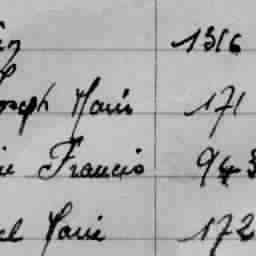 1316
Joseph Marie 171
Francis 943
Marie 172